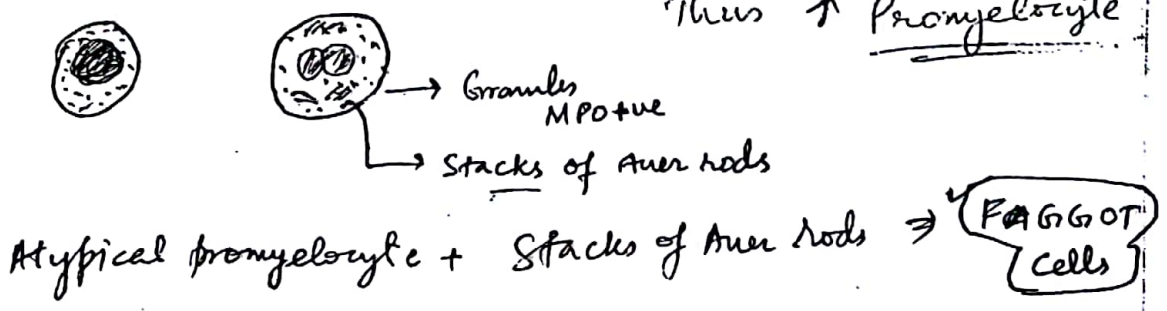 Thus ↑ Promyelocyte
Granules
MPO +ve
Stacks of Auer rods
Atypical promyelocyte + Stacks of Auer rods ⇒ FAGGOT
cells